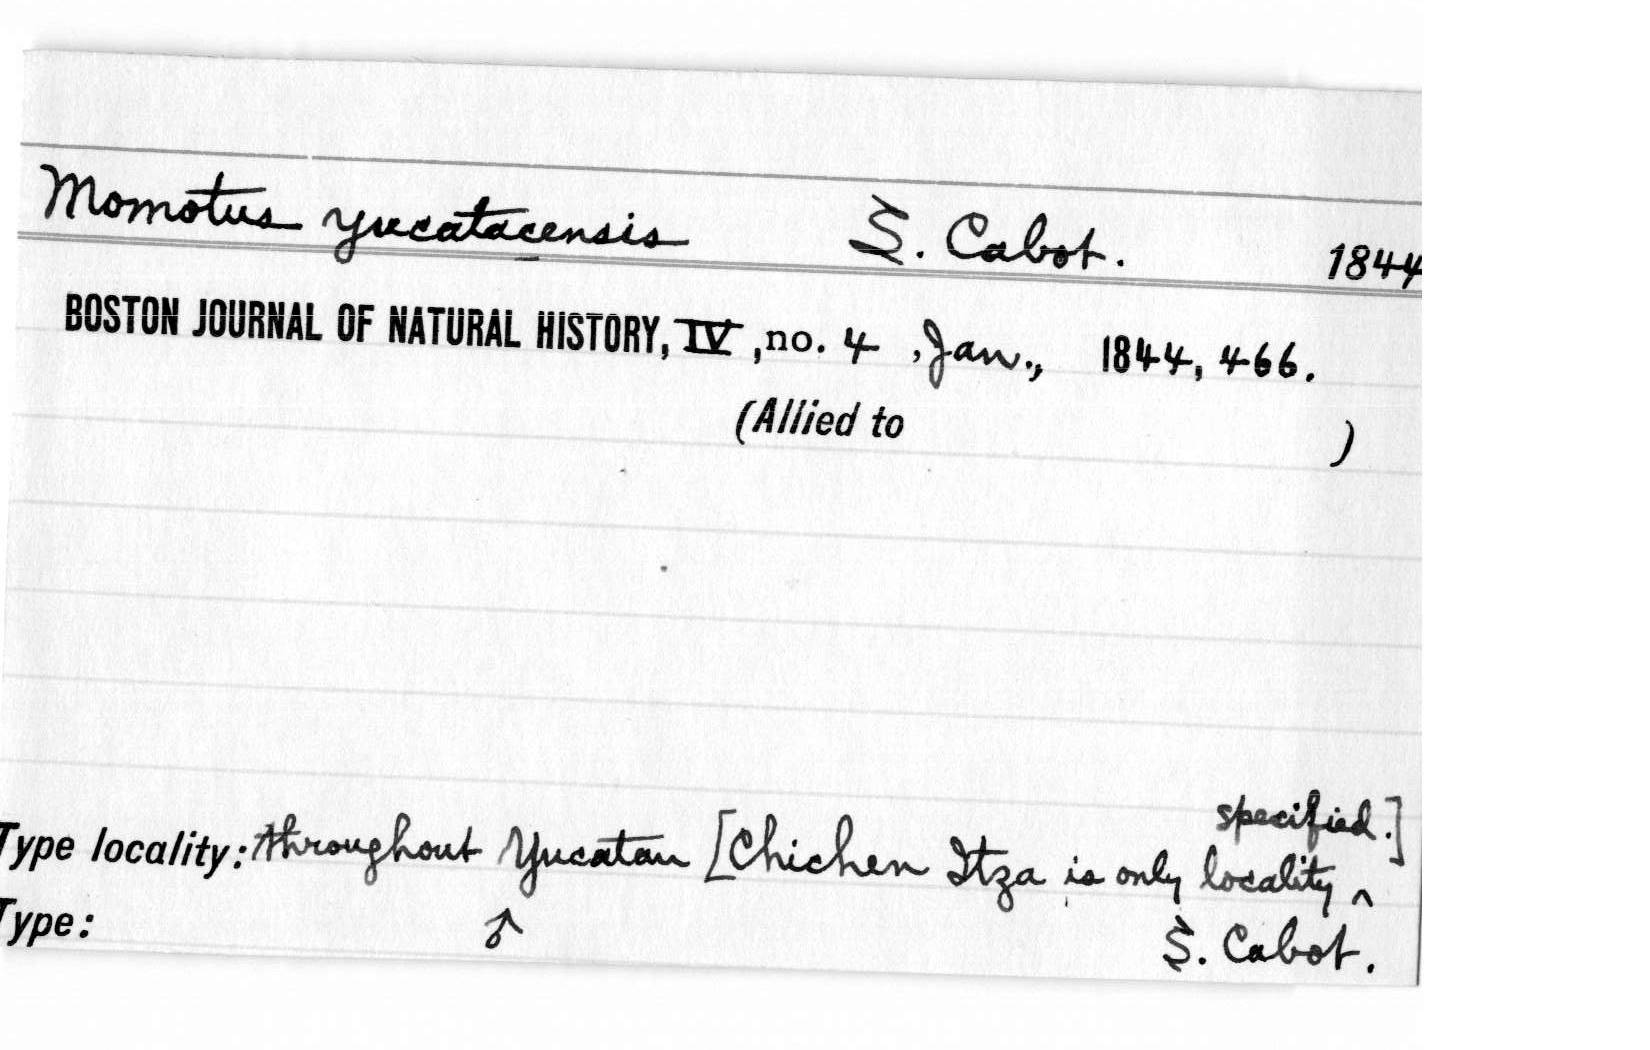 Momotus yucatacensis S. Cabot. 1844
BOSTON JOURNAL OF NATURAL HISTORY, IV, no. 4, Jan., 1844, 466.
(Allied to )
Type locality: throughout Yucatan [Chichen Itza is only locality ^ specified.]
Type: ♂ S. Cabot.